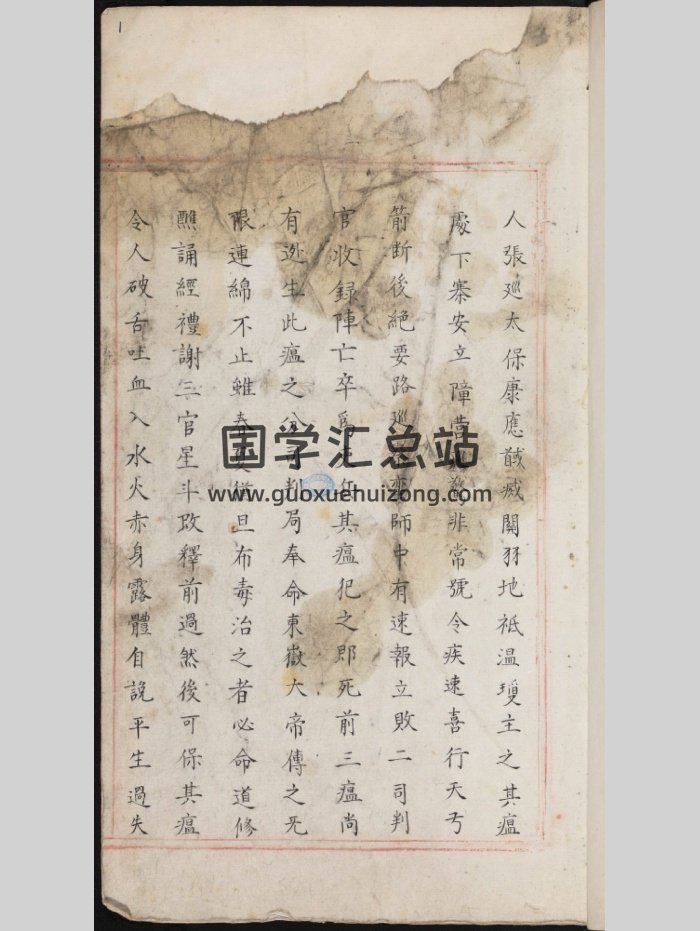 人張廵太保康應馘烕關羽地祇温瓊主之其瘟
處下寨安立障營非常號令疾速喜行天丂
箭断後絶要路廵師中有速報立敗二司判
官收録陣亡卒爲其瘟犯之即死前三瘟尚
有迯生此瘟之判局奉命東嶽大帝傳之旡
限連綿不止雖春猶且布毒治之者必命道修
醮誦經禮謝三官星斗改釋前過然後可保其瘟
令人破舌吐血入水火赤身露體自說平生過失
国学汇总站
www.guoxuehuizong.com
1